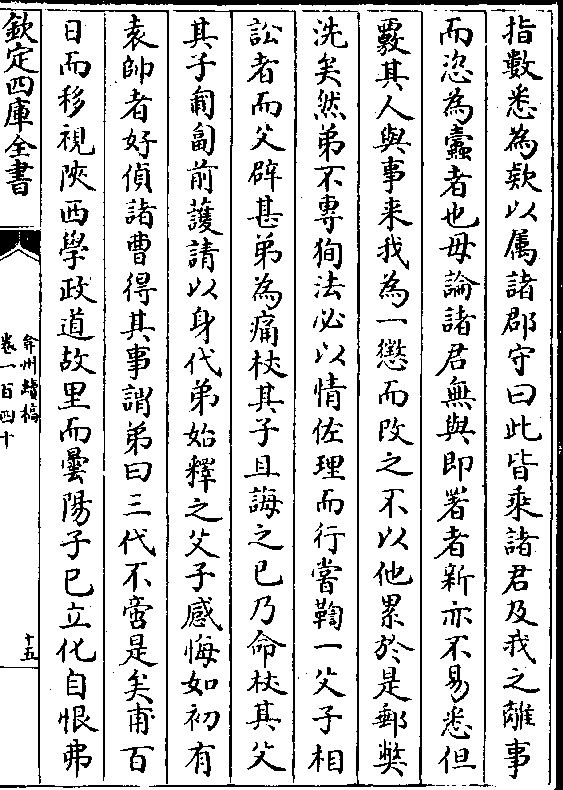 指數悉為欵以属諸郡守曰此皆乘諸君及我之離事
而恣為蠧者也毋論諸君無與即署者新亦不易悉但
覈其人與事来我為一懲而改之不以他累於是郵獘
洗矣然弟不專狥法必以情佐理而行嘗鞫一父子相
訟者而父辟甚弟為痛杖其子且誨之已乃命杖其父
其子匍匐前護請以身代弟始釋之父子感悔如初有
袁帥者好偵諸曹得其事謂弟曰三代不啻是矣甫百
日而移視陜西學政道故里而曇陽子已立化自恨弗
欽定四庫全書
弇州續稿
卷一百四十
十五